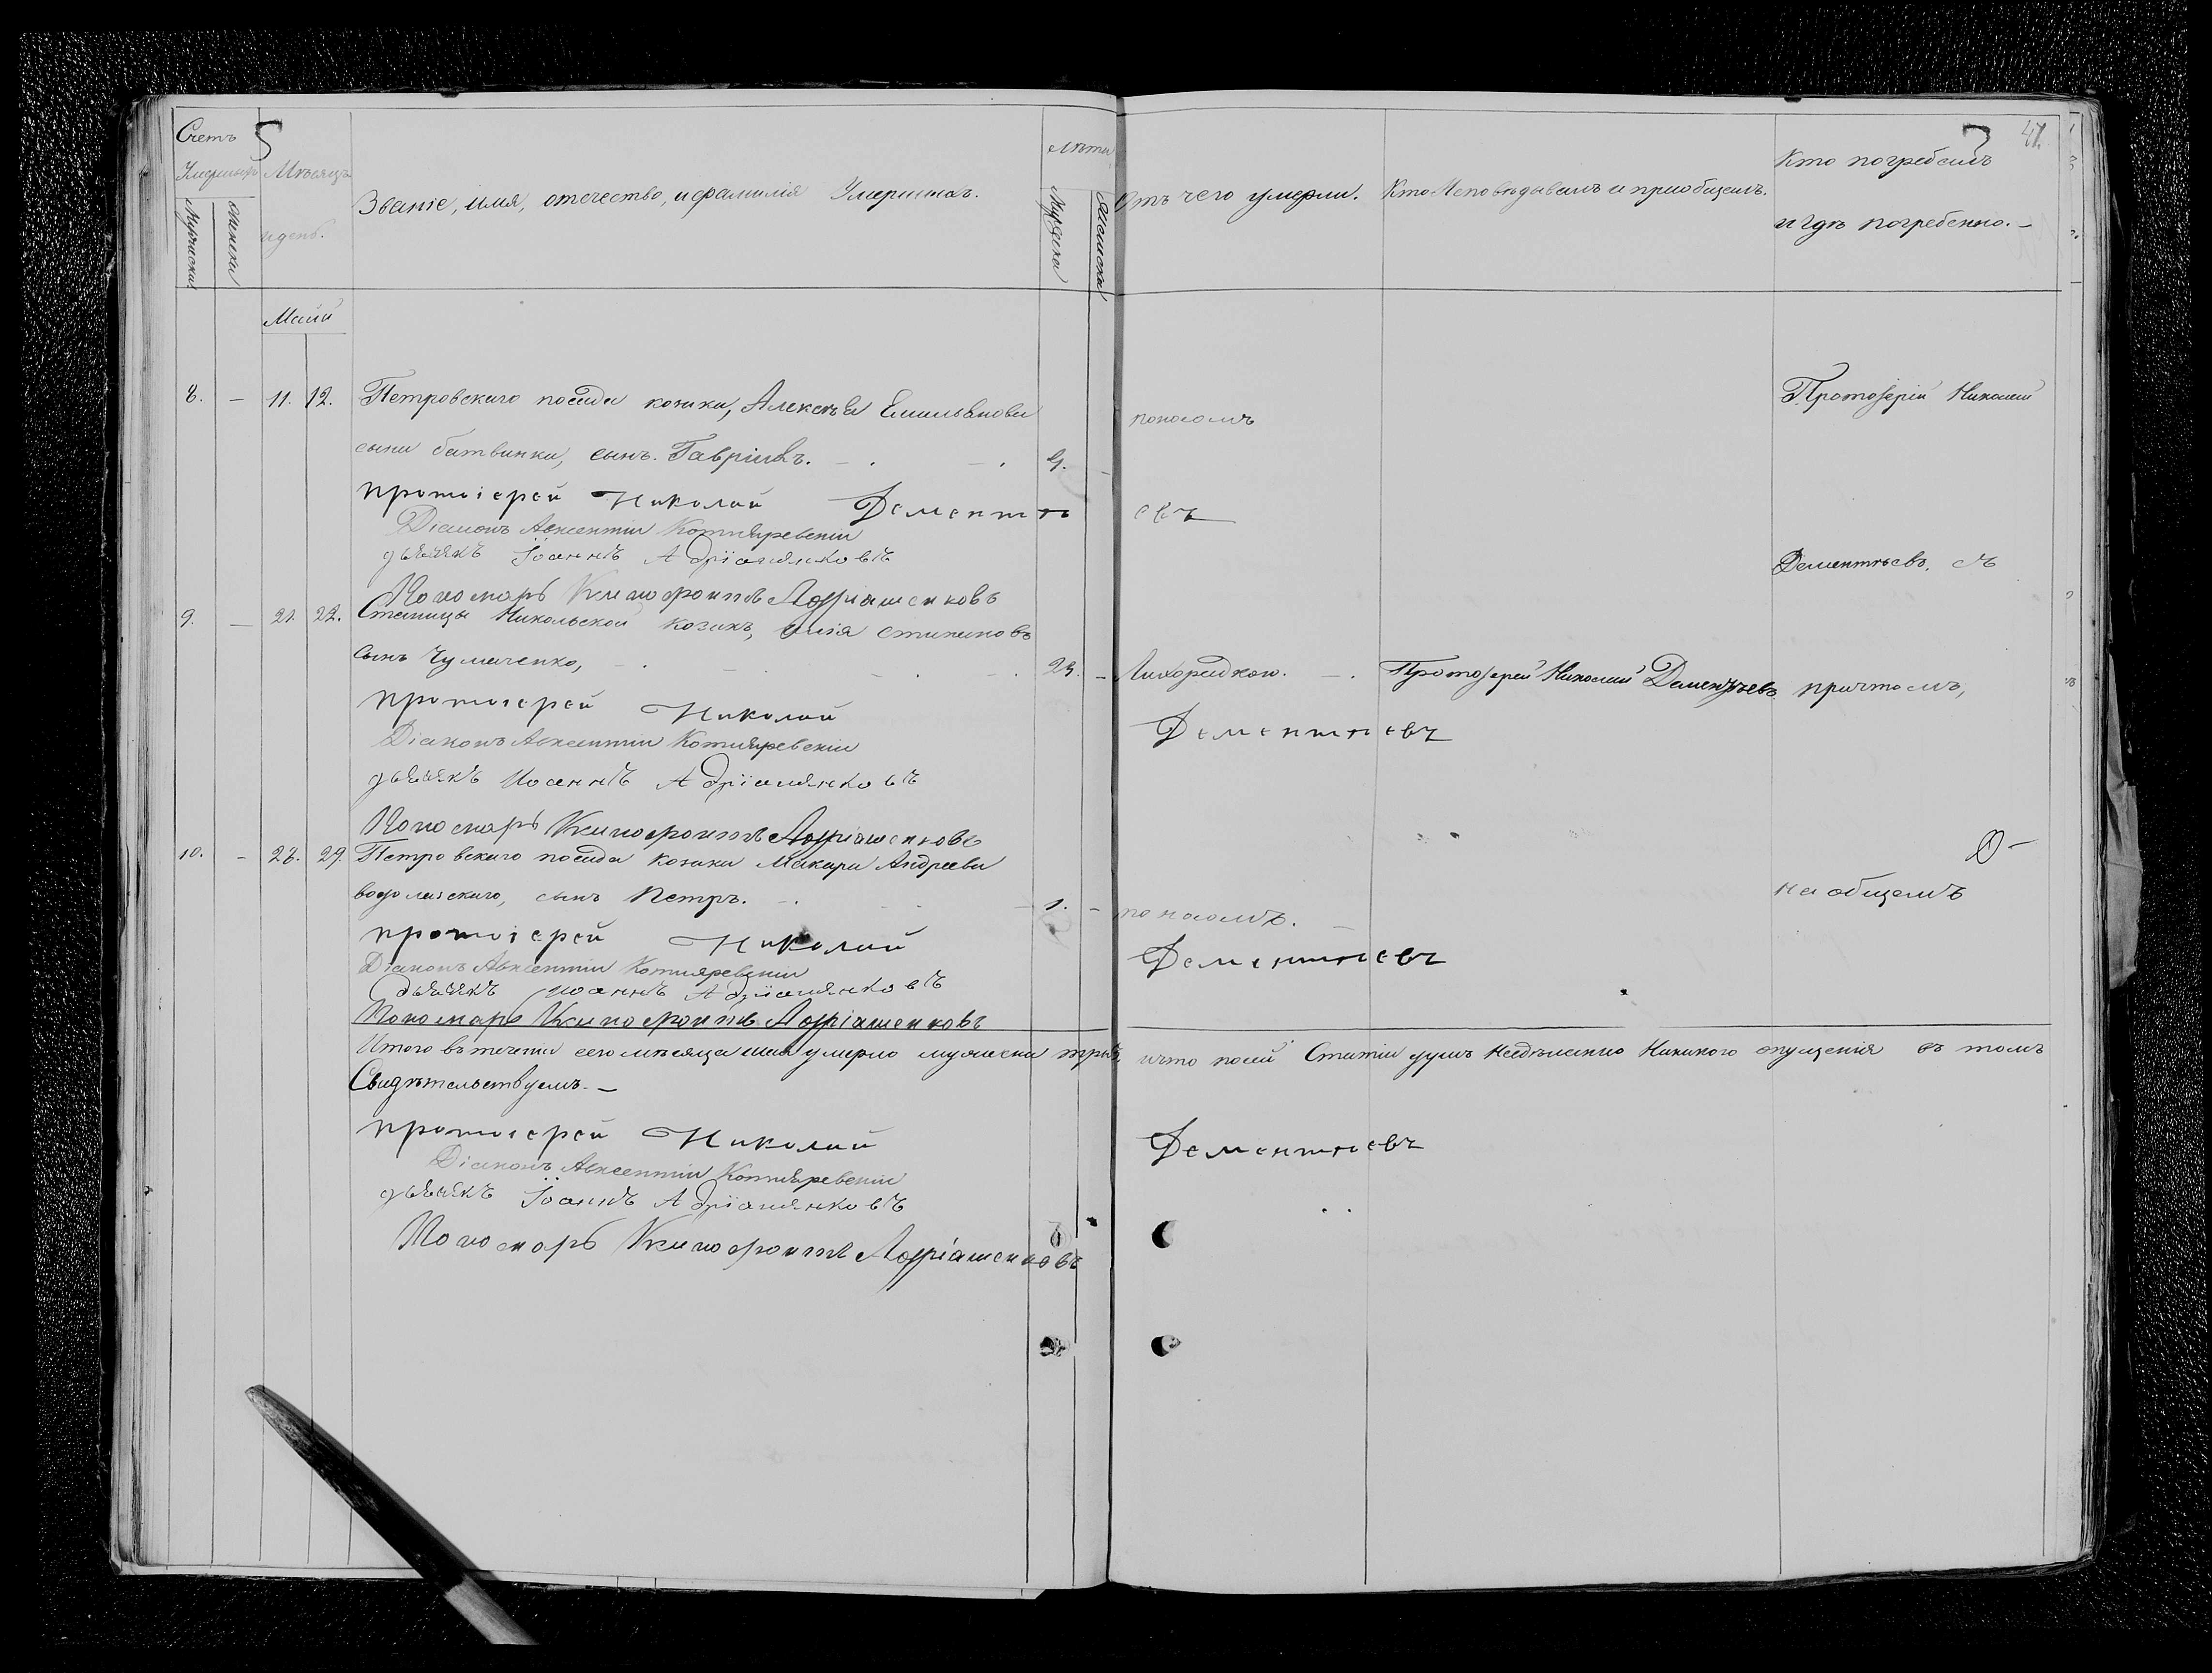 Счетъ
Умершихъ
Мѣсяцъ
и день.
Званіе, имя, отечество, и фамилія Умершихъ.
Лѣта
Отъ чего умерли.
Кто Исповѣдывалъ и приобщалъ.
Кто погребалъ
и гдѣ погребенно.
41.
Мужеска
Женска
Маій
8. — 11. 12. Петровскаго посада козака, Алексѣя Емильянова
сына батвинка, сынъ Гавріилъ.
поносомъ
Протоіерій Николай
протоіерей Николай Дементьевъ
Діаконъ Авксентій Котляревскій
дьячекъ Іоаннъ Адріашенковъ
Пономарь Ксенофонтъ Адріашенковъ
Дементьевъ, съ
9. — 21. 22. Станицы Никольской козакъ, Илія
сынъ Чумаченко, 23. — Лихорадкою. Протоіерей Николай Дементьевъ причтомъ,
протоіерей Николай Дементьевъ
Діаконъ Авксентій Котляревскій
дьячекъ Иоаннъ Адріашенковъ
Пономарь Ксенофонтъ Адріашенковъ
10. — 28. 29. Петровскаго посада козака Макара Андреева
водолазскаго, сынъ Петръ. 1. — поносомъ.
на общемъ
протоіерей Николай Дементьевъ
Діаконъ Авксентій Котляревскій
дьячекъ Иоаннъ Адріашенковъ
Пономарь Ксенофонтъ Адріашенковъ
Итого въ теченіи сего мѣсяца маія умерло мужеска три и что посей Статіи душъ несдѣланно Никакого опущенія въ томъ
Свидѣтельствуемъ. —
протоіерей Николай Дементьевъ
Діаконъ Авксентій Котляревскій
дьячекъ Іоаннъ Адріашенковъ
Пономарь Ксенофонтъ Адріашенковъ